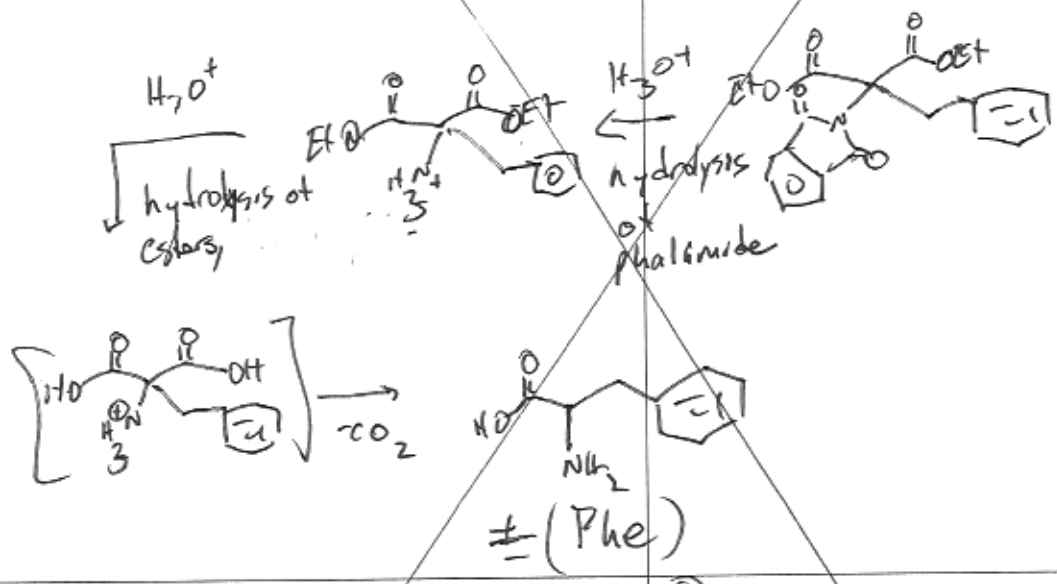 H3O+
hydrolysis of
esters,
O
O
EtO
OEt
H3N+
H3O+
hydrolysis
of
phalamide
O
O
EtO
OEt
O
N
O
O
O
HO
OH
H3N⊕
-CO2
O
HO
NH2
± (Phe)